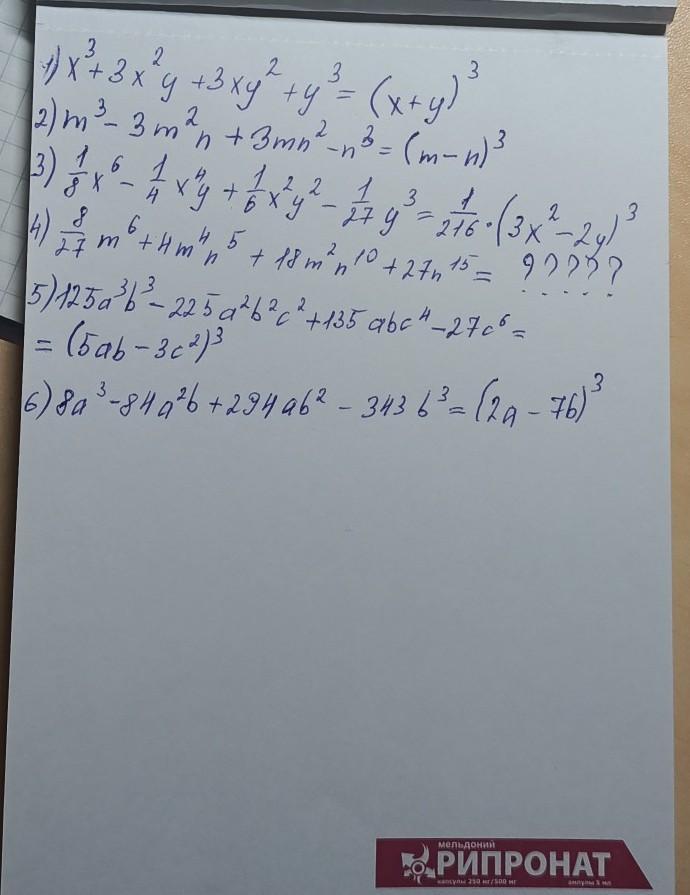 1) x³ + 3x²y + 3xy² + y³ = (x+y)³
2) m³ - 3m²n + 3mn² - n³ = (m-n)³
3) 1/8 x⁶ - 1/4 x⁴y + 1/6 x²y² - 1/27 y³ = 1/216 · (3x² - 2y)³
4) 8/27 m⁶ + 4m⁴n⁵ + 18m²n¹⁰ + 27n¹⁵ = ?????
5) 125a³b³ - 225a²b²c² + 135abc⁴ - 27c⁶ =
= (5ab - 3c²)³
6) 8a³ - 84a²b + 294ab² - 343b³ = (2a - 7b)³
мельдоний
РИПРОНАТ
капсулы 250 мг/500 мг ампулы 5 мл